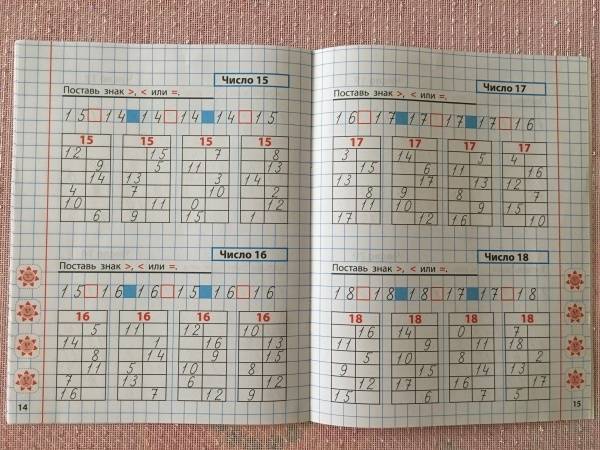 Число 15
Поставь знак >, < или =.
15 14 14 14 14 15
15 15 15 15
12 15 7 8
9 5 11 13
14 13 3 14
4 7 10 2
10 11 0 12
6 9 15 1
Число 16
Поставь знак >, < или =.
15 16 16 15 16 16
16 16 16 16
5 11 12 10
14 1 16 13
8 14 9 15
11 5 10 8
7 13 6 12
16 7 12 9
14
Число 17
Поставь знак >, < или =.
16 17 17 17 17 16
17 17 17 17
3 14 5 4
15 6 11 16
13 17 13 12
8 9 8 7
11 10 9 15
17 12 16 10
Число 18
Поставь знак >, < или =.
18 18 18 17 17 18
18 18 18 18
16 14 0 7
11 9 11 18
5 10 8 2
9 15 14 13
12 17 12 17
15 6 7 5
15